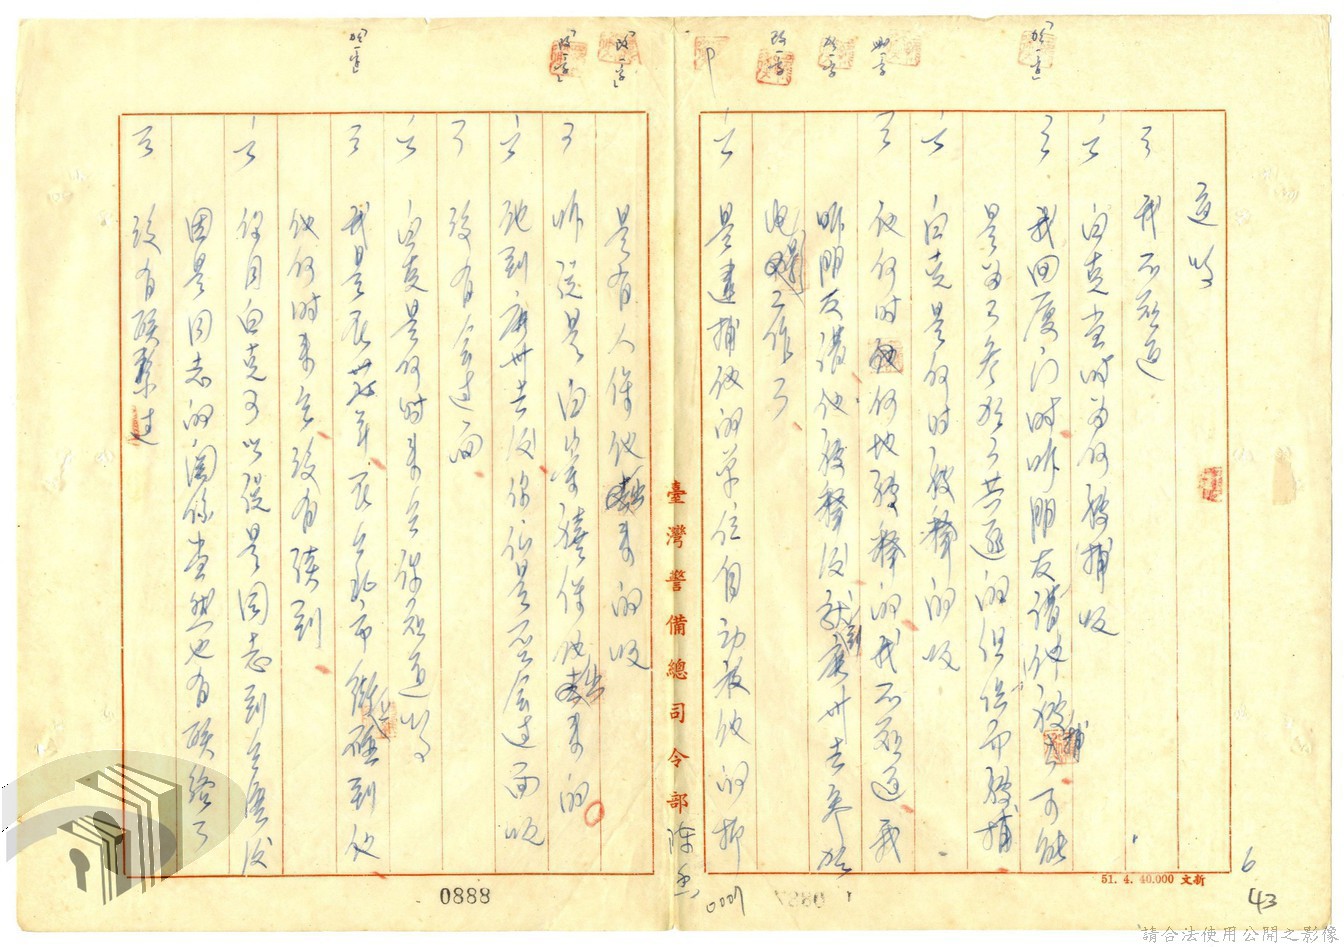 道嗎
答 我不知道
問 白克當時為何被捕呢
答 我回廈門時聽朋友講他被捕了可能
是為了參加了共匪的組織而被捕
問 白克是何時被釋的呢
答 他何時何地被釋的我不知道我
聽朋友講他被釋後就到廣州去參加
電影工作了
問 是逮捕他的單位自動放他的抑
是有人保他出來的呢
答 聽說是白崇禧保他出來的
問 他到廣州去後你們是否會過面呢
答 沒有會過面
問 白克是何時來台你知道嗎
答 我是在卅六年在台北市街上碰到他
他何時來台沒有談到
問 你同白克可以說是同志到台灣後
因是同志的關係當然也有聯絡了
答 沒有聯繫過
臺灣警備總司令部
51. 4. 40.000 文新
0888
0887
6
43
請合法使用公開之影像